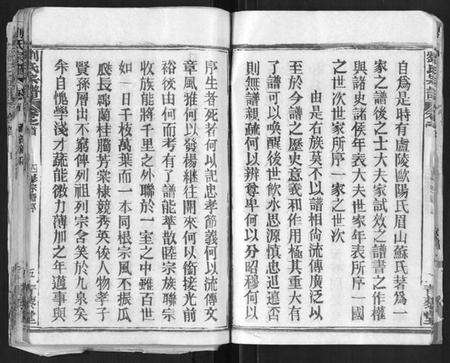 自爲是時有盧陵歐陽氏眉山蘇氏著爲一
家之譜後之士大夫家試效之譜書之作權
與諸史諸侯年表大夫世家年表所序一國
之世次世家所序一家之世次
由是右族莫不以譜相尙流傳廣泛以
至於今譜之歷史意義和作用極其重大有
譜可以喚醒後世飲水思源愼思追遠否
則無譜親疏何以辨尊卑何以分昭穆何以
序生者死者何以記忠孝節義何以流傳文
章風雅何以發楊繼往開來何以銜接光前
裕後由何而考有了譜能華散睦宗族聯宗
收族能將千里之外聯於一室之中雖百世
如一日千枝萬葉而一本同根宗風不振瓜
瓞長髙蘭桂騰芳棠棣競秀英後人物孝子
賢孫層出不窮俾列祖列宗含笑於九泉矣
余自愧學淺才蔬能微力薄加之年邁事與
劉氏宗譜
卷之首